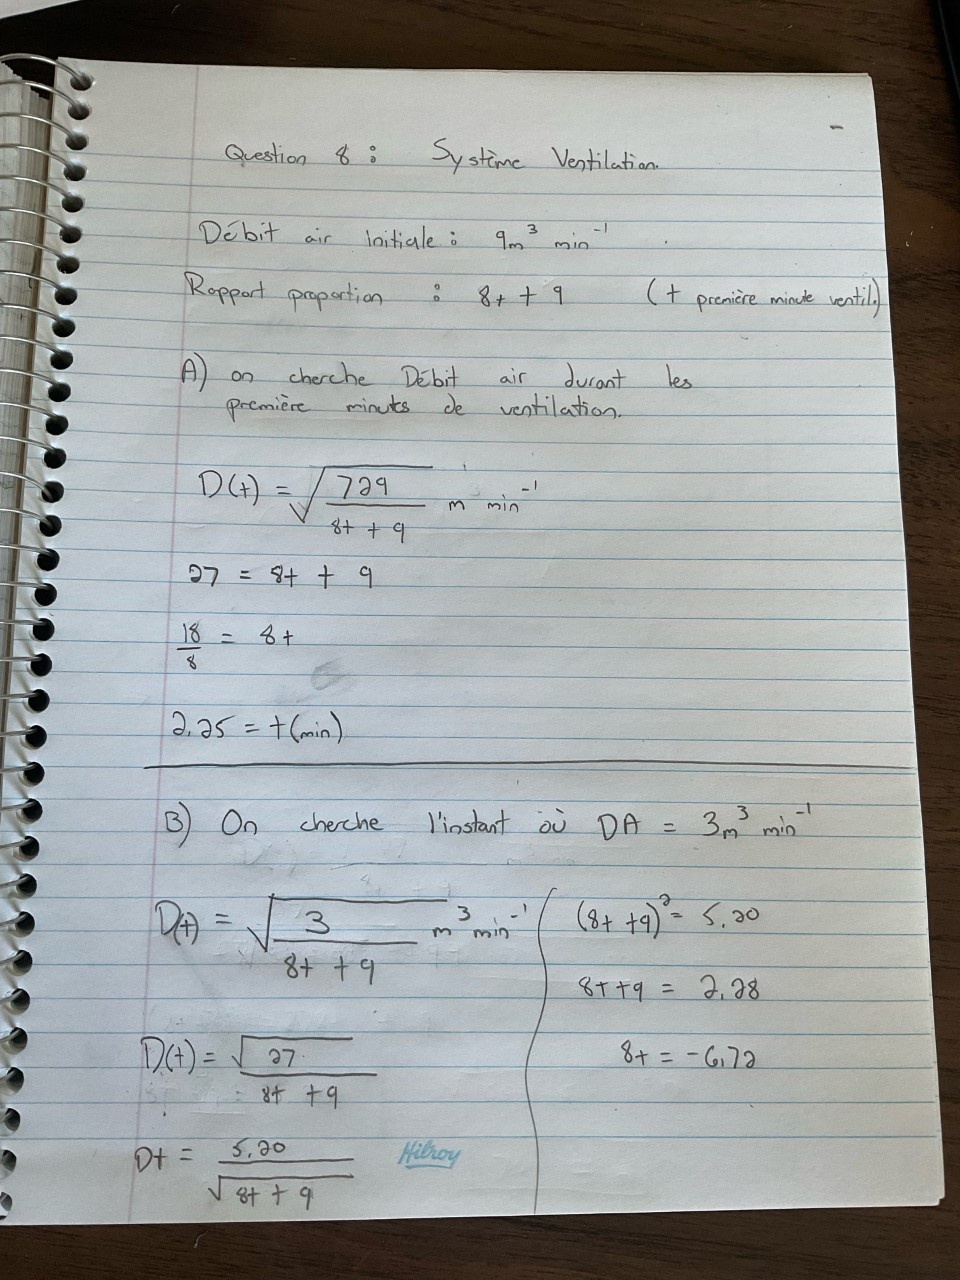 Question 8 : Système Ventilation.
Débit air Initiale : 9m³ min⁻¹
Rapport proportion : 8t + 9 (t première minute ventil.)
A) on cherche Débit air durant les
première minutes de ventilation.
D(t) = √(729 / 8t + 9) m min⁻¹
27 = 8t + 9
18/8 = 8t
2,25 = t(min)
B) On cherche l'instant où DA = 3m³ min⁻¹
D(t) = √(3 / 8t + 9) m³ min⁻¹
D(t) = √27 / 8t + 9
Dt = 5,20 / √8t + 9
(8t + 9)² = 5,20
8t + 9 = 2,28
8t = -6,72
Hilroy